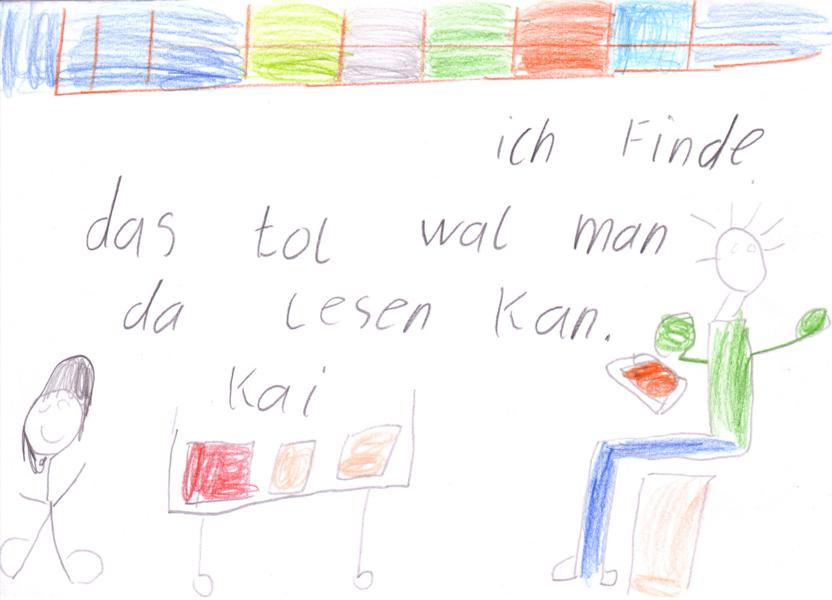 ich Finde
das tol wal man
da Lesen Kan.
Kai